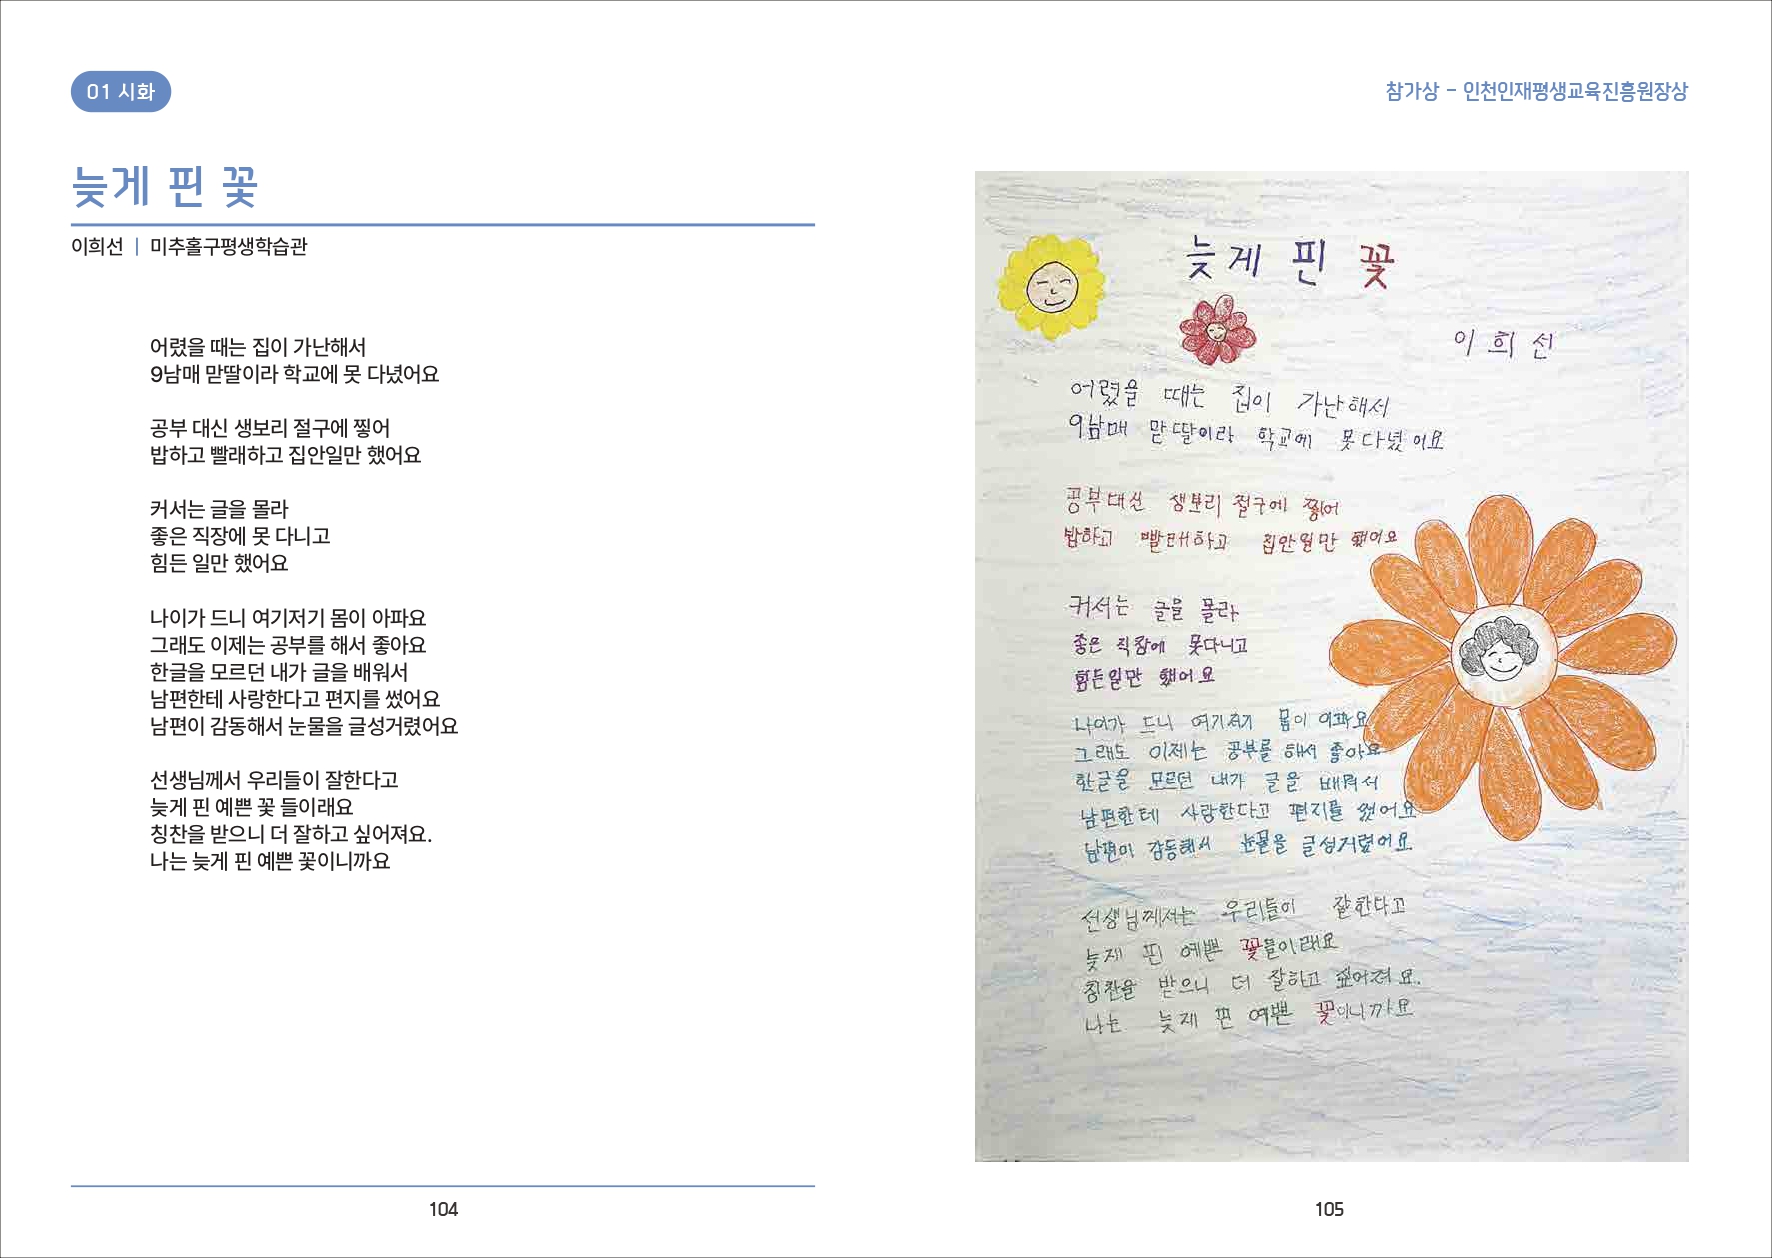 01 시화
늦게 핀 꽃
이희선 | 미추홀구평생학습관
어렸을 때는 집이 가난해서
9남매 맏딸이라 학교에 못 다녔어요
공부 대신 생보리 절구에 찧어
밥하고 빨래하고 집안일만 했어요
커서는 글을 몰라
좋은 직장에 못 다니고
힘든 일만 했어요
나이가 드니 여기저기 몸이 아파요
그래도 이제는 공부를 해서 좋아요
한글을 모르던 내가 글을 배워서
남편한테 사랑한다고 편지를 썼어요
남편이 감동해서 눈물을 글성거렸어요
선생님께서 우리들이 잘한다고
늦게 핀 예쁜 꽃 들이래요
칭찬을 받으니 더 잘하고 싶어져요.
나는 늦게 핀 예쁜 꽃이니까요
104
참가상 - 인천인재평생교육진흥원장상
늦게 핀 꽃
이희선
어렸을 때는 집이 가난해서
9남매 맏딸이라 학교에 못다녔어요
공부대신 생보리 절구에 찧어
밥하고 빨래하고 집안일만 했어요
커서는 글을 몰라
좋은 직장에 못다니고
힘든일만 했어요
나이가 드니 여기저기 몸이 아파요
그래도 이제는 공부를 해서 좋아요
한글을 모르던 내가 글을 배워서
남편한테 사랑한다고 편지를 썼어요
남편이 감동해서 눈물을 글성거렸어요
선생님께서는 우리들이 잘한다고
늦게 핀 예쁜 꽃들이래요
칭찬을 받으니 더 잘하고 싶어져요.
나는 늦게 핀 예쁜 꽃이니까요
105